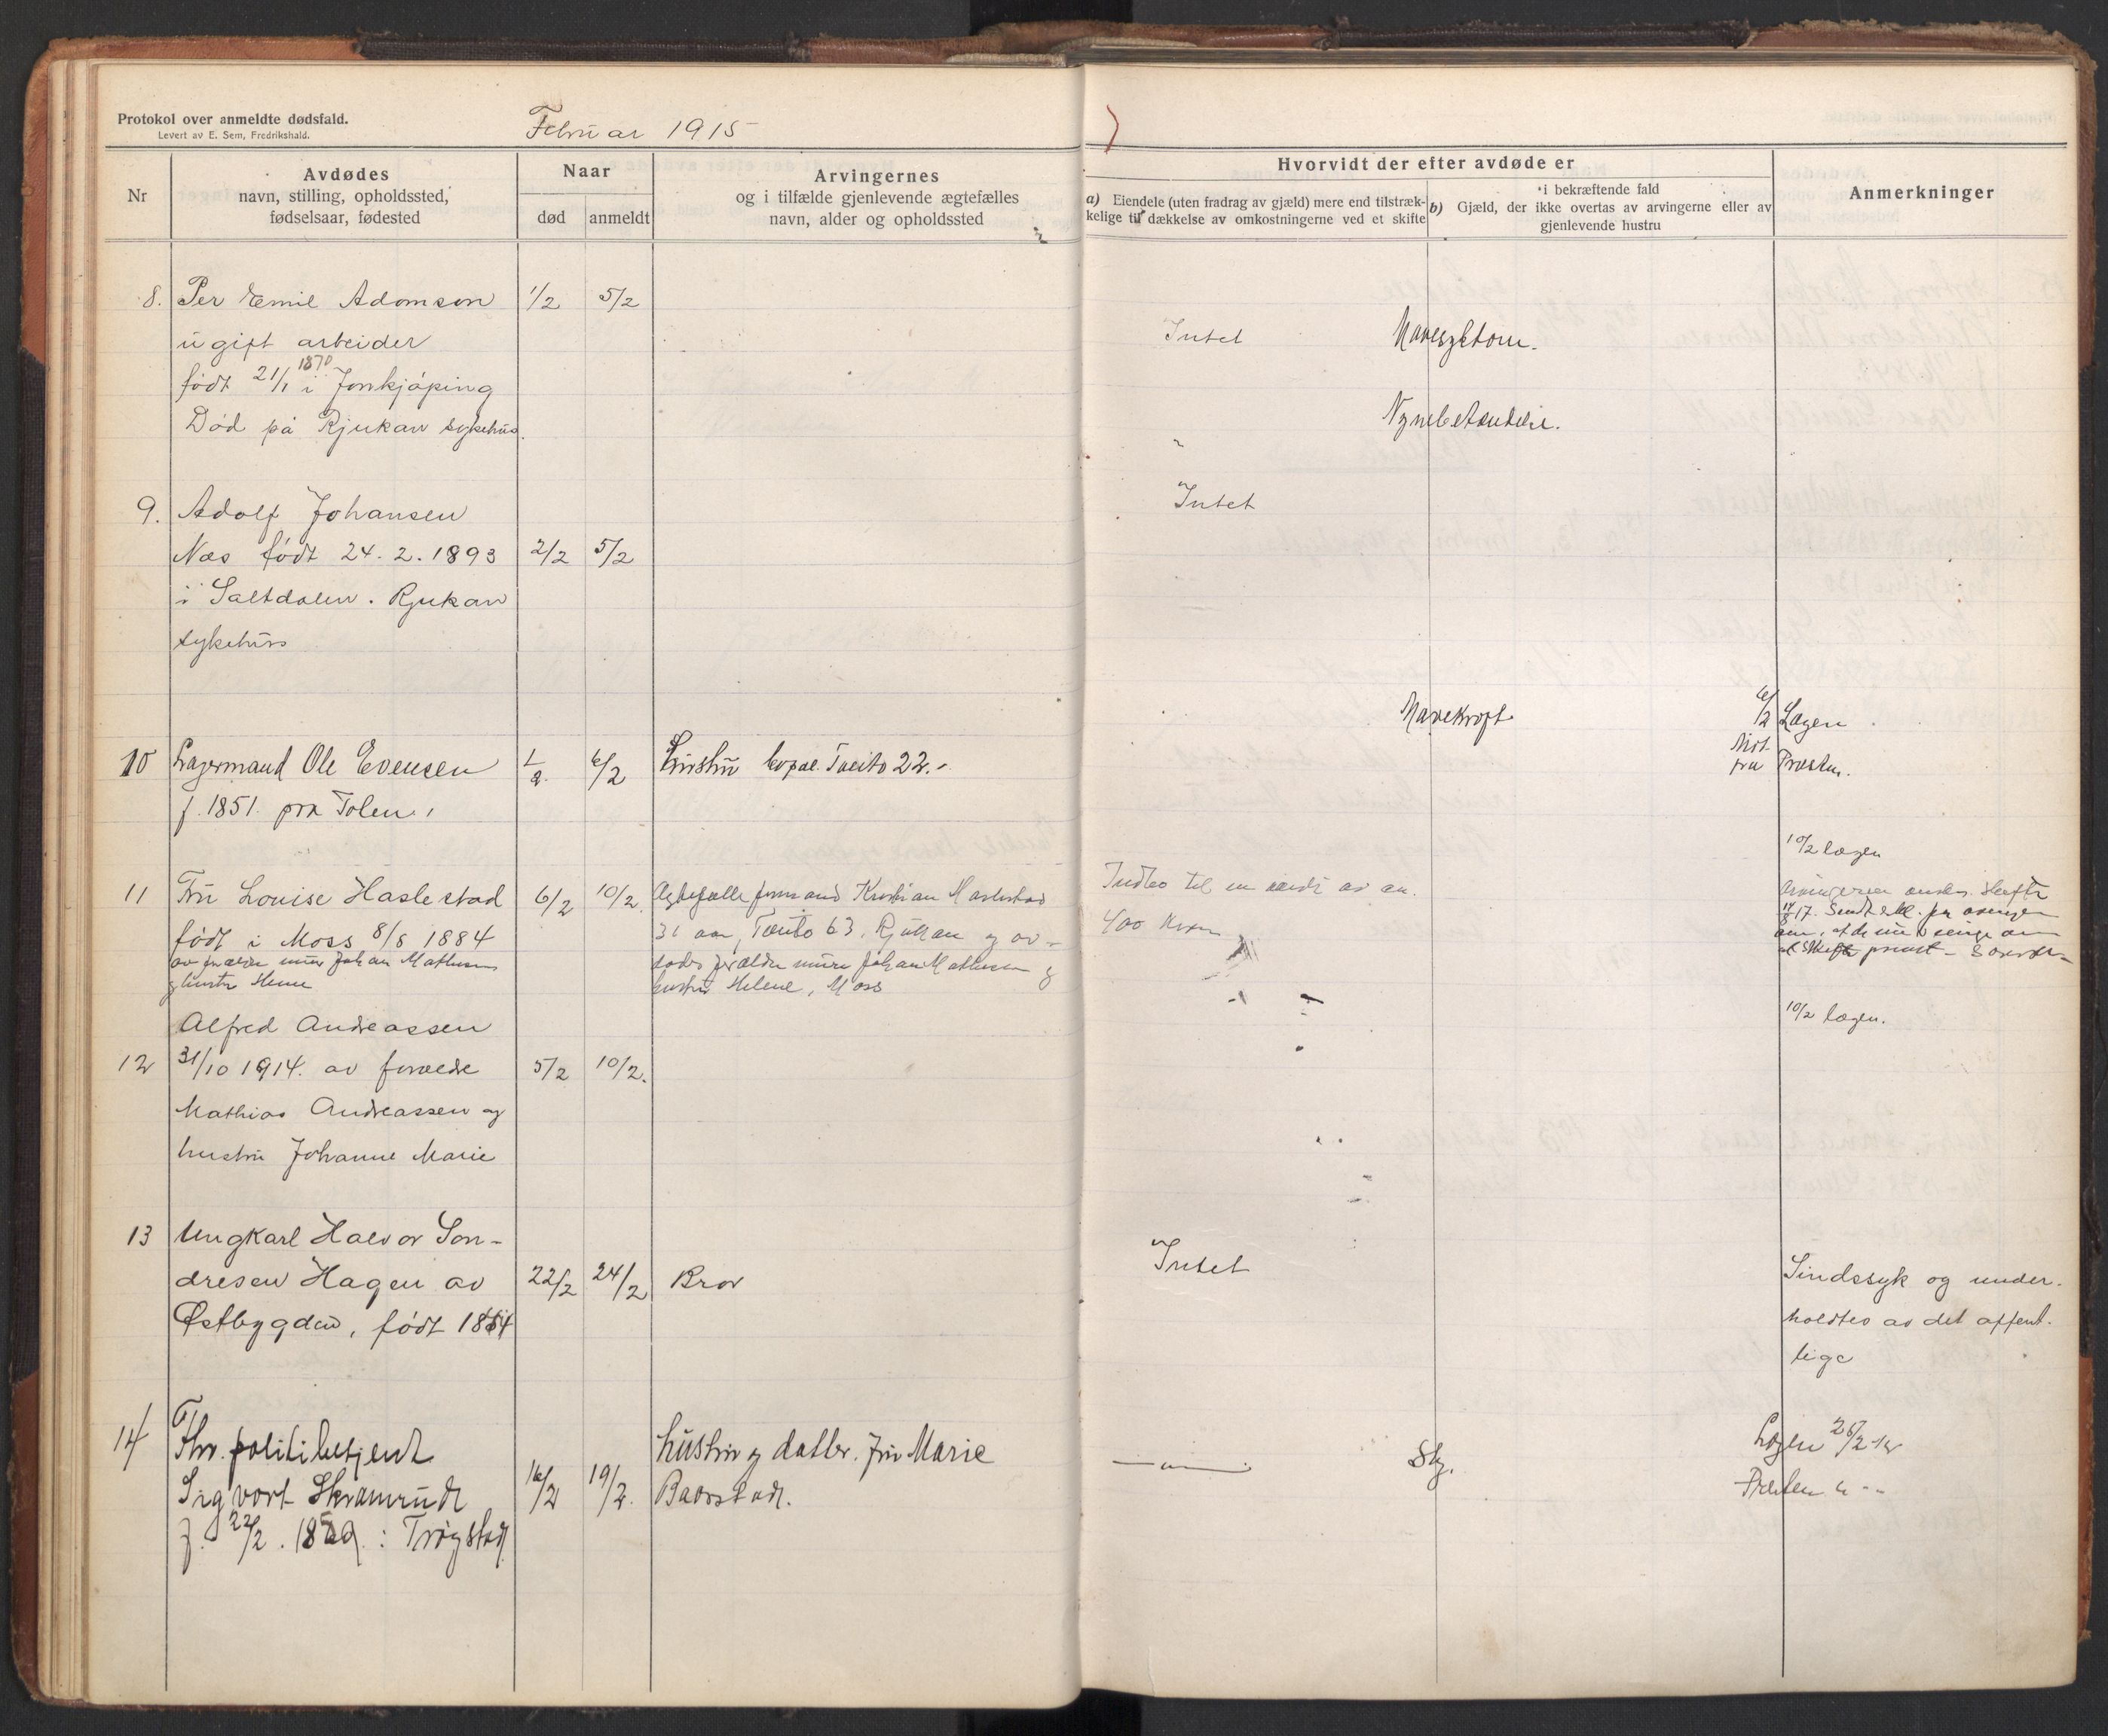 Protokol over anmeldte dødsfald.
Levert av E. Sem, Fredrikshald.
Februar 1915
Nr
Avdødes
navn, stilling, opholdssted,
fødselsaar, fødested
Naar
død
anmeldt
Arvingernes
og i tilfælde gjenlevende ægtefælles
navn, alder og opholdssted
Hvorvidt der efter avdøde er
a) Eiendele (uten fradrag av gjæld) mere end tilstræk-
kelige til dækkelse av omkostningerne ved et skifte
b)
i bekræftende fald
Gjæld, der ikke overtas av arvingerne eller av
gjenlevende hustru
Anmerkninger
8. Per Emil Adomson 1/2 5/2
ugift arbeider
født 21/1 1870 i Jonkjøping
Død på Rjukan sykehus.
Intet
9. Adolf Johansen
Næs født 24.2.1893 2/2 5/2
i Saltdalen. Rjukan
sykehus
Intet
10 Lagermand Ole Evensen 1/2. 6/2 Hustru
f. 1851. fra
Mavekræft
6/2 Lægen
Præsten.
11 Fru Louise Haslestad 6/2 10/2. Ægtefælle formand Kristian Haslestad
født i Moss 8/8 1884 31 aar, 63, Rjukan og av-
av forældre murer Johan Mathisen dødes forældre murer Johan Mathisen og
og hustru hustru Helene, Moss
Indbo til en værdi av ca.
400 kroner
10/2 lægen
12 Alfred Andreassen
31/10 1914. av forældre 5/2 10/2.
Mathias Andreassen og
hustru Johanne Marie
10/2 lægen.
13 Ungkarl Halvor Son-
dresen Hagen av 22/2 24/2 Bror
Østbygden, født
Intet
Sindssyk og under-
holdtes av det offent-
lige
14 Fhv. politibetjent hustru og datter. fru Marie
Sigvart Skramrud 16/2 19/2. Baarstad.
f. 22/2. i Trøgstad
Lægen 26/2
Præsten